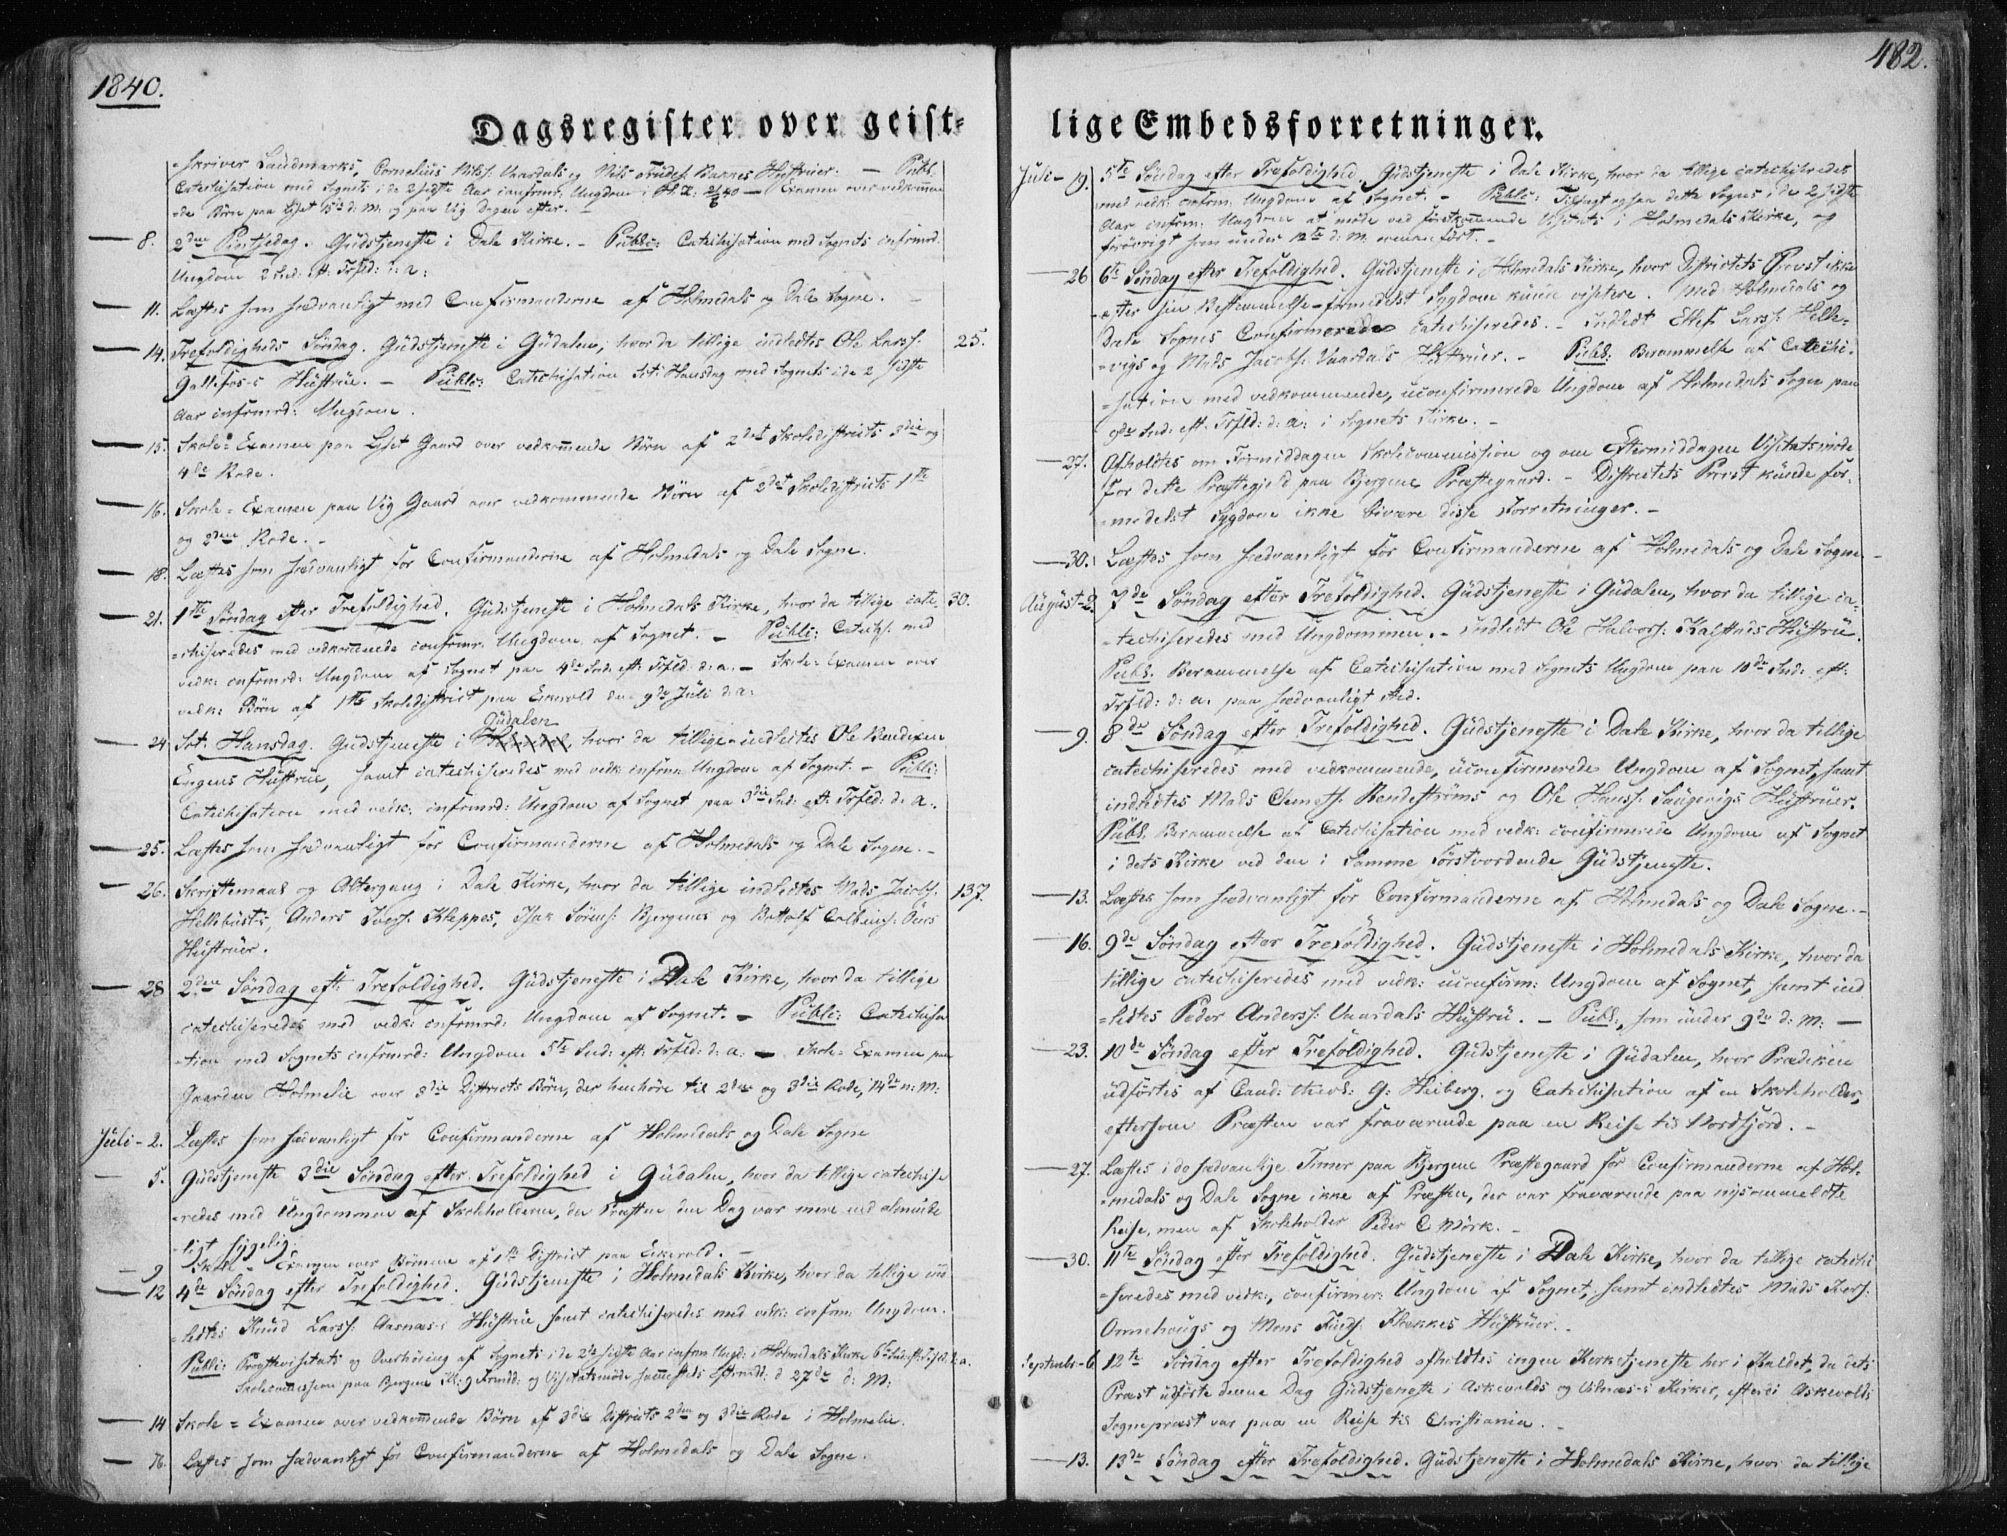 1840.
482.
Dagsregister over geist-
lige Embedsforretninger.
-skriver Landmarks, Cornelius Nils: Vaardals og Nils Hustruer. — Publ.
Catechisation med Sognets i de 2 sidste Aar confirm: Ungdom — Examen over vedkomen
-de Børn paa Liset 15de d: M: og paa Vig Dagen efter. —
— 8. 2den Pintsedag. Gudstjeneste i Dale Kirke. — Publi: Catechisation med Sognets cnfrmrd.
Ungdom 2 Snd: eft. Trfld: d: a:
— 11. Læstes som sædvanligt med Confirmanderne af Holmedals og Dale Sogne. —
— 14. Trefoldigheds Søndag. Gudstjeneste i Gudalen, hvor da tillige indledtes Ole Larss: 25.
Hustrue. — Publi: Catechisation Sct: Hansdag med Sognets i de 2 sidste
Aar cnfrmrd: Ungdom.
— 15. Skole-Examen paa Liset Gaard over vedkomende Børn af 2det Skoledistricts 3die og
4de Rode.
— 16. Skole-Examen paa Vig Gaard over vedkommende Børn af 2det Skoledistricts 1ste
og 2den Rode. —
— 18. Læstes som sædvanligt for Confirmanderne af Holmedals og Dale Sogne.
— 21. 1ste Søndag efter Trefoldighed. Gudstjeneste i Holmedals Kirke, hvor da tillige cate 30.
-chiseredes med vedkomende confrmr. Ungdom af Sognet. — Publi: Catechs: med
vedk: cnfrmrd: Ungdom af Sognet paa 4de Snd: eft: Trfld: d: a. — Skole-Examen over
vedk: Børn af 1ste Skoledistrict paa Eikevold den 9de Juli d: a:
Gudalen
— 24. Sct. Hansdag. Gudstjeneste i Holmedal, hvor da tillige indledtes Ole Bendixen
Engens Hustrue, samt catechiseredes med vedk: cnfrm: Ungdom af Sognet. — Publi:
Catechisation med vedk: cnfrmrd: Ungdom af Sognet paa 3die Snd: eft: Trfld: d: a:
— 25. Læstes som sædvanligt for Confirmanderne af Holmedals og Dale Sogne. —
— 26. Skriftemaal og Altergang i Dale Kirke, hvor da tillige indledtes Mads Jacobs: 137.
Anders Iverss: Kleppes, Isak Sørens: Bjergenes og Bottolf
Hustruer.
— 28. 2den Søndag eft: Trefoldighed. Gudstjeneste i Dale Kirke, hvor da tillige
catechiseredes med vedk: cnfrmrd: Ungdom af Sognet. — Publi: Catechisa
-tion med Sognets cnfrmrd: Ungdom 5te Snd: eft: Trfld: d: a: — Skole-Examen paa
Gaarden Holmelie over 3die Districts Børn, der henhøre til 2den og 3die Rode, 14de n: M:
Juli - 2. Læstes som sædvanligt for Confirmanderne af Holmedals og Dale Sogne
— 5. Gudstjeneste 3die Søndag efter Trefoldighed i Gudalen, hvor da tillige catechise
-redes med Ungdommen af Skoleholderen, da Præsten den Dag var mere end almind
-ligt sygelig.
— 9 Skole-Examen over Børnene af 1ste District paa Eikevold. —
— 12 4de Søndag efter Trefoldighed. Gudstjeneste i Holmedals Kirke, hvor da tillige ind
-ledtes Knud Larss: Aasnæs's Hustrue samt catechiseredes med vedk: confrm: Ungdom.
Publi: Provstevisitats og Overhøring af Sognets i de 2de sidste Aar cnfrm: Ungd: i Holmedals Kirke 6te Snd: eft: Trfld: d: a.
Skolecomission paa Bjergene Kl: 9 Frmdd: og Visitatsmøde sammesteds Eftrmdd: d 27de d: M:
— 14 Skole-Examen over vedkomende Børn af 3die Districts 2den og 3die Rode i Holmelie.
— 16. Læstes som sædvanligt for Confirmanderne af Holmedals og Dale Sogne.
Juli - 19. 5te Søndag efter Trefoldighed. Gudstjeneste i Dale Kirke, hvor da tillige catechiseredes
med vedk: confrm: Ungdom af Sognet. — Publi: Tilsagt ogsaa dette Sogns i de 2 sidste
Aar cnfrm: Ungdom at møde ved førstkommende Visitats i Holmedals Kirke, og
forøvrigt som under 12te d: M. ovenanført. —
— 26 6te Søndag efter Trefoldighed. Gudstjeneste i Holmedals Kirke, hvor Districtets Provst ikke
efter sin Bestemmelse formedelst Sygdom kunde visitere. Med Holmedals og
Dale Sognes Confirmerede catechiseredes. — Indledt Ellef Larss: Helle-
-vigs og Mads Jacobs: Vaardals Hustruer. — Publ: Berammelse af Catechi-
-sation med vedkommende, uconfirmerede Ungdom af Holmedals Sogn paa
9de Snd: eft. Trfld: d: a: i Sognets Kirke. —
— 27. Afholdtes om Formiddagen Skolecommission og om Eftermiddagen Visitatsmøde
for dette Præstegjeld paa Bjergene Præstegaard. — Districtets Provst kunde for-
-medelst Sygdom ikke bivære disse Forretninger. —
— 30. Læstes som sædvanligt for Confirmanderne af Holmedals og Dale Sogne —
August - 2. 7de Søndag efter Trefoldighed. Gudstjeneste i Gudalen, hvor da tillige ca-
-techiseredes med Ungdommen. — Indledt Ole Halvors: Kalstads Hustru.
Publ. Berammelse af Catechisation med Sognets Ungdom paa 10de Snd: eft:
Trfld: d: a. paa sædvanligt Sted.
— 9. 8de Søndag efter Trefoldighed. Gudstjeneste i Dale Kirke, hvor da tillige
catechiseredes med vedkommende, uconfirmerede Ungdom af Sognet, samt
indledtes Mads Clemets: Rendestrøms og Ole Hans: Saugevigs Hustruer.
Publ. Berammelse af Catechisation med vedk: confirmerede Ungdom af Sognet
i dets Kirke ved den i Samme førstvordende Gudstjeneste.
— 13. Læstes som sædvanligt for Confirmanderne af Holmedals og Dale Sogne. —
— 16. 9de Søndag efter Trefoldighed. Gudstjeneste i Holmedals Kirke, hvor da
tillige catechiseredes med vedk: uconfirm: Ungdom af Sognet, samt ind
-ledtes Peder Anderss: Vaardals Hustru. — Publ:, som under 9de d: M: —
— 23. 10de Søndag efter Trefoldighed. Gudstjeneste i Gudalen, hvor Prædiken
udførtes af Cand: theol: G: Heiberg, og Catechisation af en Skoleholder,
eftersom Præsten var fraværende paa en Reise til Nordfjord. —
— 27. Læstes i de sædvanlige Timer paa Bjergene Præstegaard for Confirmanderne af Hol-
-medals og Dale Sogne ikke af Præsten, der var fraværende paa nysanmeldte
Reise, men af Skoleholder Peder C. Mørk. —
— 30. 11te Søndag efter Trefoldighed. Gudstjeneste i Dale Kirke, hvor da tillige catechi
-seredes med vedk:, confirmer: Ungdom af Sognet, samt indledtes Mads
Ormehaugs og Mons Hustruer. —
September - 6 12te Søndag efter Trefoldighed afholdtes ingen Kirketjeneste her i Kaldet, da dets
Præst udførte denne Dag Gudstjeneste i Askevolds og Vilnæs's Kirker, efterdi Askevolds
Sognepræst var paa en Reise til Christiania. —
— 13. 13de Søndag efter Trefoldighed. Gudstjeneste i Holmedals Kirke, hvor da tillige